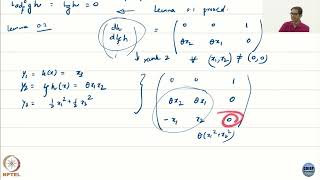 ad²f h = Lgh = 0
Lemma 0.1 proved.
Lemma 0.2
( dh dLfh ) = ( 0 0 1 θx2 θx1 0 )
rank 2 ≠ (x1, x2) ≠ (0, 0)
y1 = h(x) = x3
y2 = Lfh(x) = θx1x2
y3 = ½ x1² + ½ x2²
( 0 0 1
θx2 θx1 0
-x1 x2 0 )
θ(x1² + x2²)
NPTEL